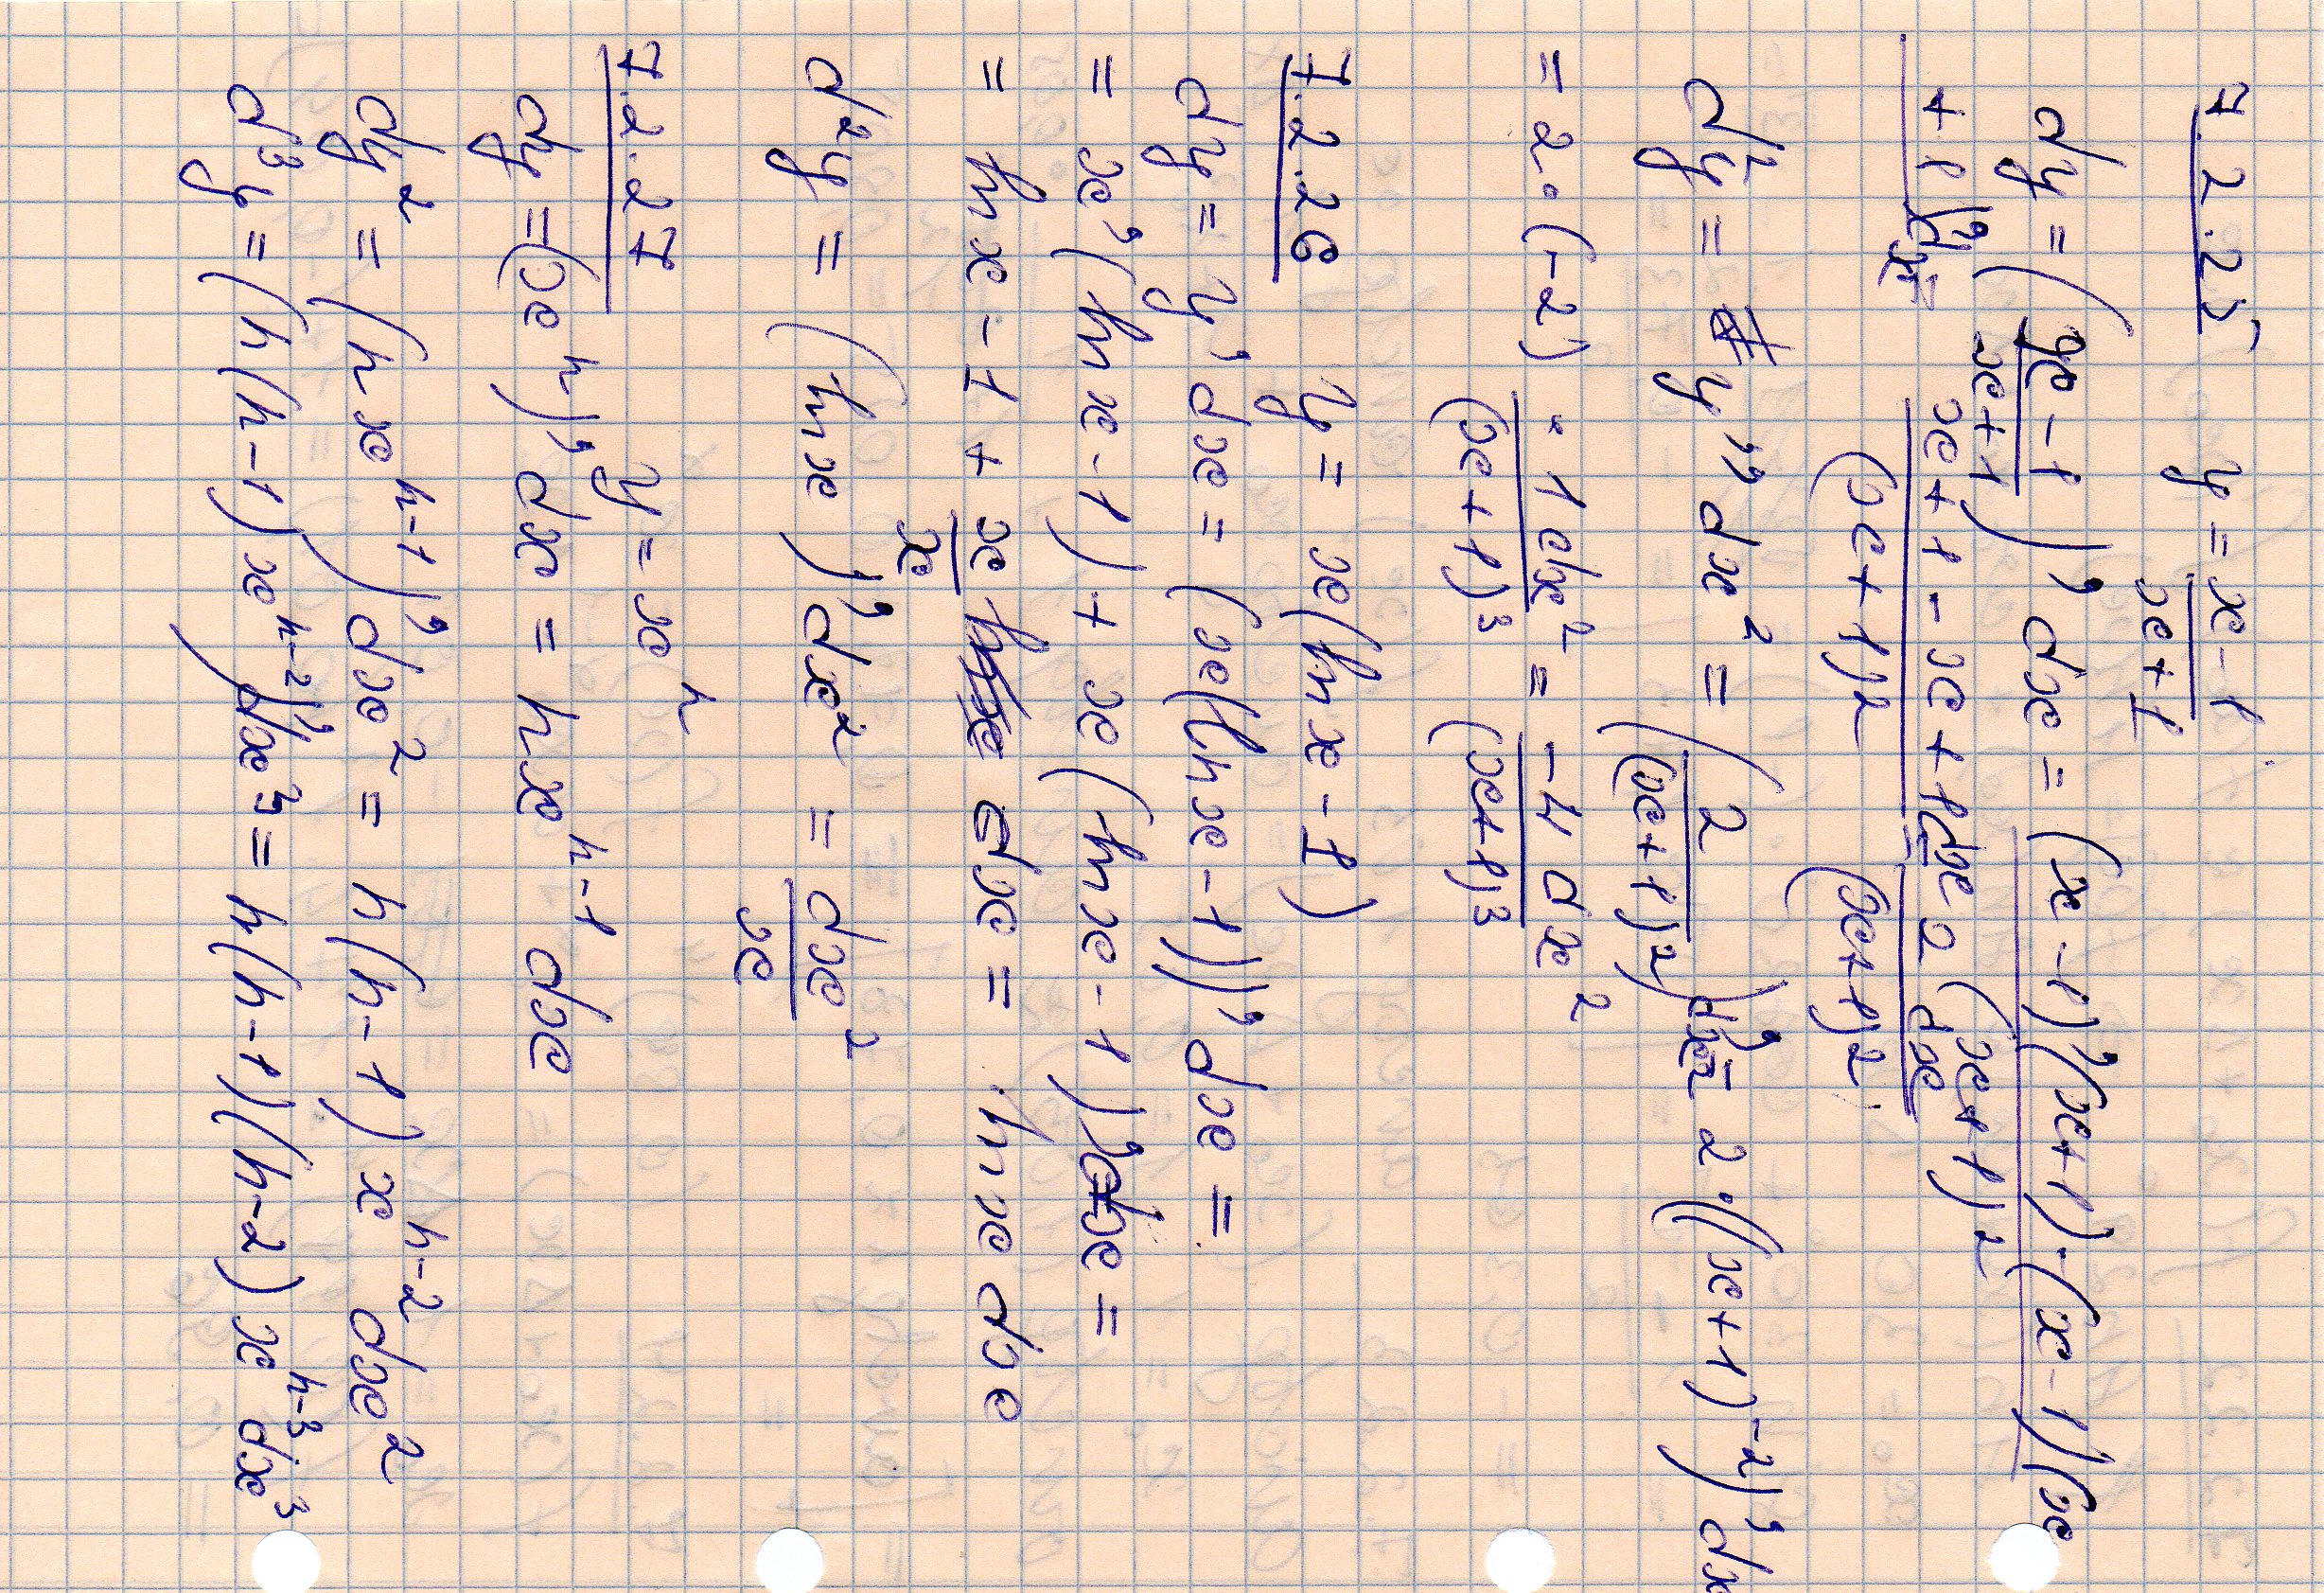 7.2.25 y = (x-1)/(x+1)
dy = ((x-1)/(x+1))' dx = ((x-1)'(x+1)-(x-1)(x
+1)')/(x+1)² dx = (x+1-x+1)/(x+1)² dx = 2 dx/(x+1)²
d²y = y'' dx² = (2/(x+1)²)' dx² = 2·((x+1)⁻²)' dx
= 2·(-2)·1 dx²/(x+1)³ = -4 dx²/(x+1)³
7.2.26 y = x(ln x - 1)
dy = y' dx = (x(ln x - 1))' dx =
= x'(ln x - 1) + x(ln x - 1)' dx =
= ln x - 1 + x/x dx = ln x dx
d²y = (ln x)' dx² = dx²/x
7.2.27 y = xⁿ
dy = (xⁿ)' dx = n xⁿ⁻¹ dx
dy² = (n xⁿ⁻¹)' dx² = n(n-1) xⁿ⁻² dx²
d³y = (n(n-1) xⁿ⁻²)' dx³ = n(n-1)(n-2) xⁿ⁻³ dx³